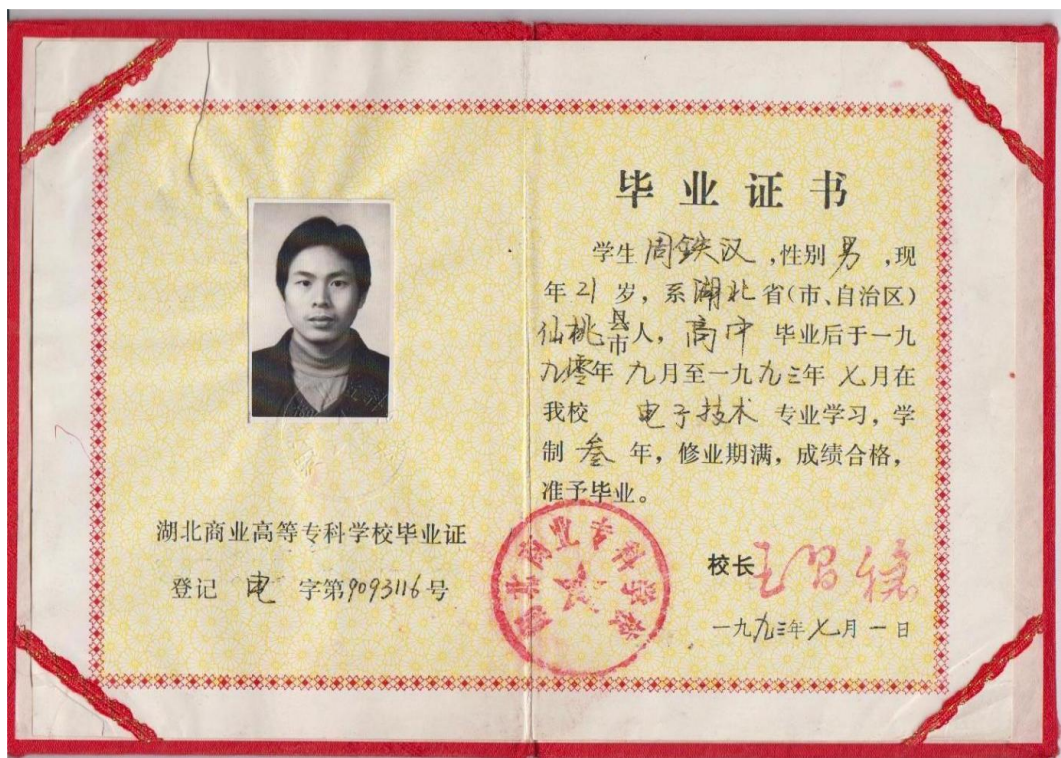 湖北商业高等专科学校毕业证
登记 电 字第9093116号
毕业证书
学生周鉄汉,性别男,现
年21岁,系湖北省(市、自治区)
仙桃县市人,高中毕业后于一九
九零年九月至一九九三年七月在
我校 电子技术 专业学习,学
制叁年,修业期满,成绩合格,
准予毕业。
校长
一九九三年七月一日
湖北商业专科学校